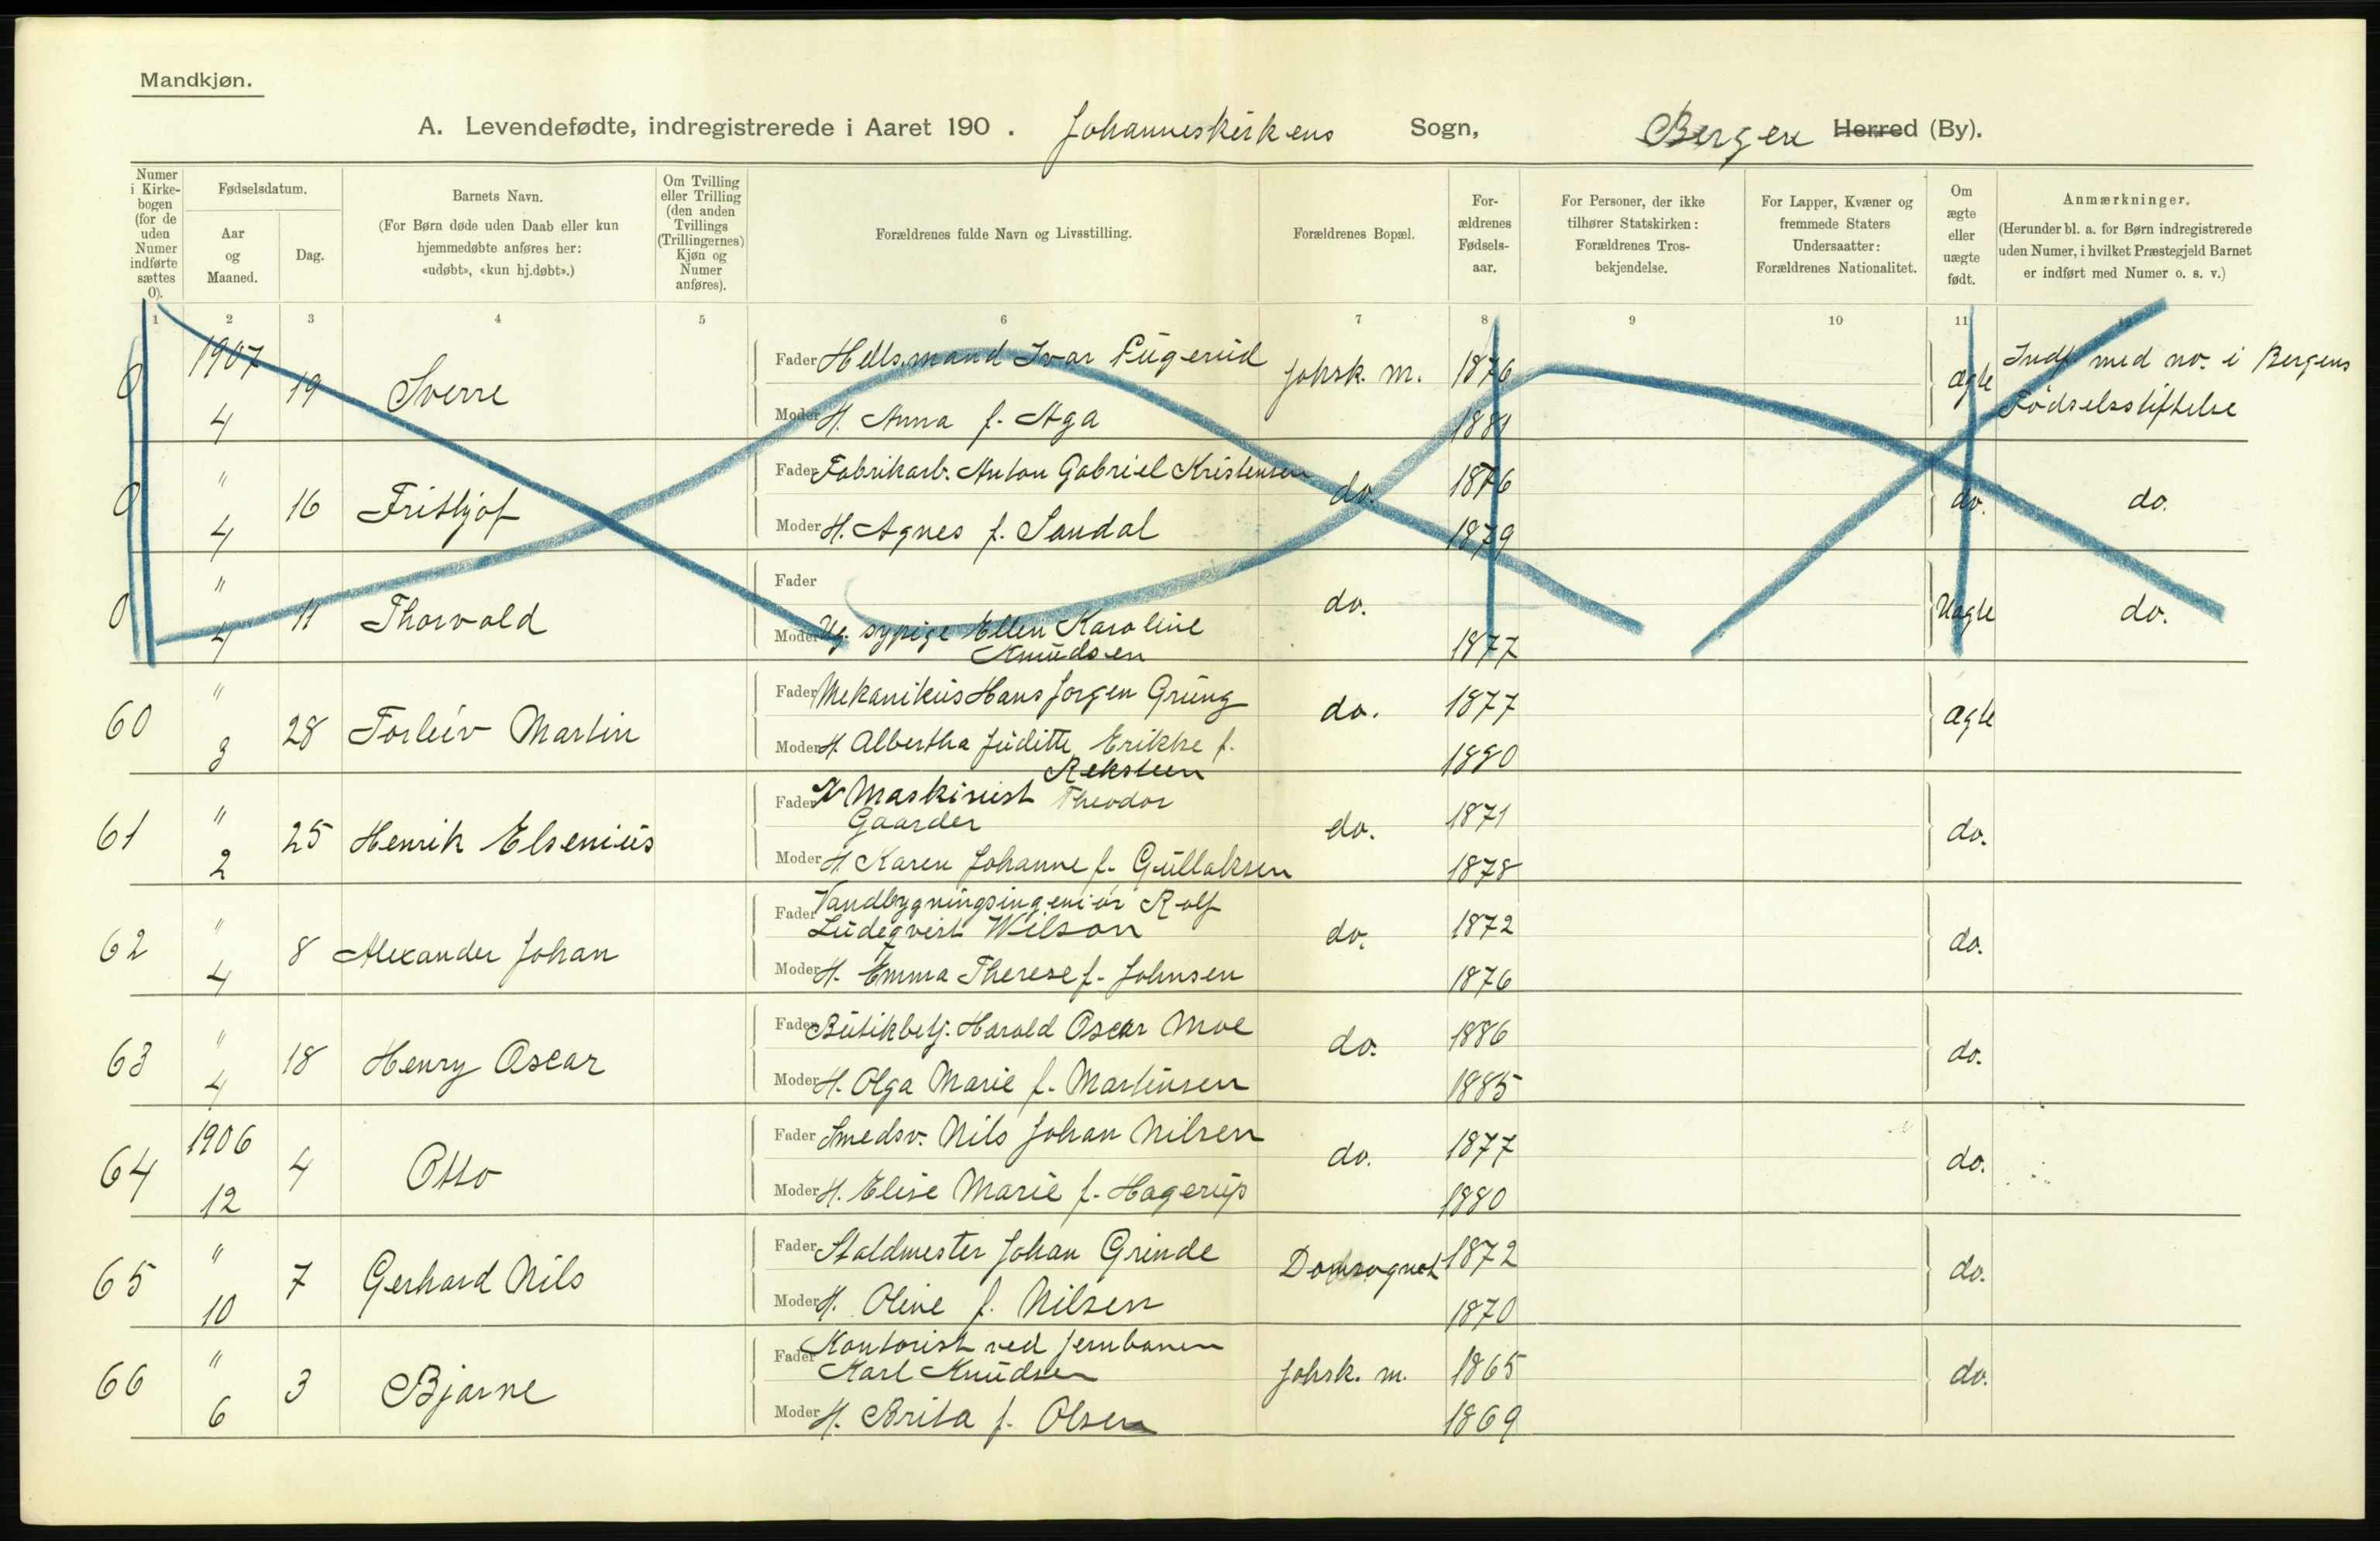 Mandkjøn.
A. Levendefødte, indregistrerede i Aaret 190 . Johanneskirkens Sogn, Bergen Herred (By).
Numer i Kirkebogen (for de uden Numer indførte sættes 0).
Fødselsdatum.
Aar og Maaned.
Dag.
Barnets Navn.
(For Børn døde uden Daab eller kun hjemmedøbte anføres her: «udøbt», «kun hj.døbt».)
Om Tvilling eller Trilling (den anden Tvillings (Trillingernes) Kjøn og Numer anføres).
Forældrenes fulde Navn og Livsstilling.
Forældrenes Bopæl.
For-ældrenes Fødsels-aar.
For Personer, der ikke tilhører Statskirken: Forældrenes Tros-bekjendelse.
For Lapper, Kvæner og fremmede Staters Undersaatter: Forældrenes Nationalitet.
Om ægte eller uægte født.
Anmærkninger.
(Herunder bl. a. for Børn indregistrerede uden Numer, i hvilket Præstegjeld Barnet er indført med Numer o. s. v.)
1 2 3 4 5 6 7 8 9 10 11 12
0 1907 4 19 Sverre Fader Hells.mand Ivar Fugerud Johsk. m. 1876 ægte Indf. med no. i Bergens Fødselsstiftelse
Moder H. Anna f. Aga 1881
0 " 4 16 Frithjof Fader Fabrikarb. Anton Gabriel Kristensen do. 1876 do. do.
Moder H. Agnes f. Sandal 1879
0 " 4 11 Thorvald Fader do. Uægte do.
Moder Ug. sypige Ellen Karoline Knudsen 1877
60 " 3 28 Torleiv Martin Fader Mekanikus Hans Jørgen Grung do. 1877 ægte
Moder H. Albertha Juditte Erikke f. Reksteen 1880
61 " 2 25 Henrik Elsenius Fader Maskinist Theodor Gaarder do. 1871 do.
Moder H. Karen Johanne f. Gullaksen 1878
62 " 4 8 Alexander Johan Fader Vandbygningsingeniør Rolf Ludeqvist Wilson do. 1872 do.
Moder H. Emma Therese f. Johnsen 1876
63 " 4 18 Henry Oscar Fader Butikbetj. Harald Oscar Moe do. 1886 do.
Moder H. Olga Marie f. Martinsen 1885
64 1906 12 4 Otto Fader Smedsv. Nils Johan Nilsen do. 1877 do.
Moder H. Elise Marie f. Hagerup 1880
65 " 10 7 Gerhard Nils Fader Staldmester Johan Grinde Domsognet 1872 do.
Moder H. Oline f. Nilsen 1870
66 " 6 3 Bjarne Fader Kontorist ved Jernbanen Karl Knudsen Johsk. m. 1865 do.
Moder H. Brita f. Olsen 1869